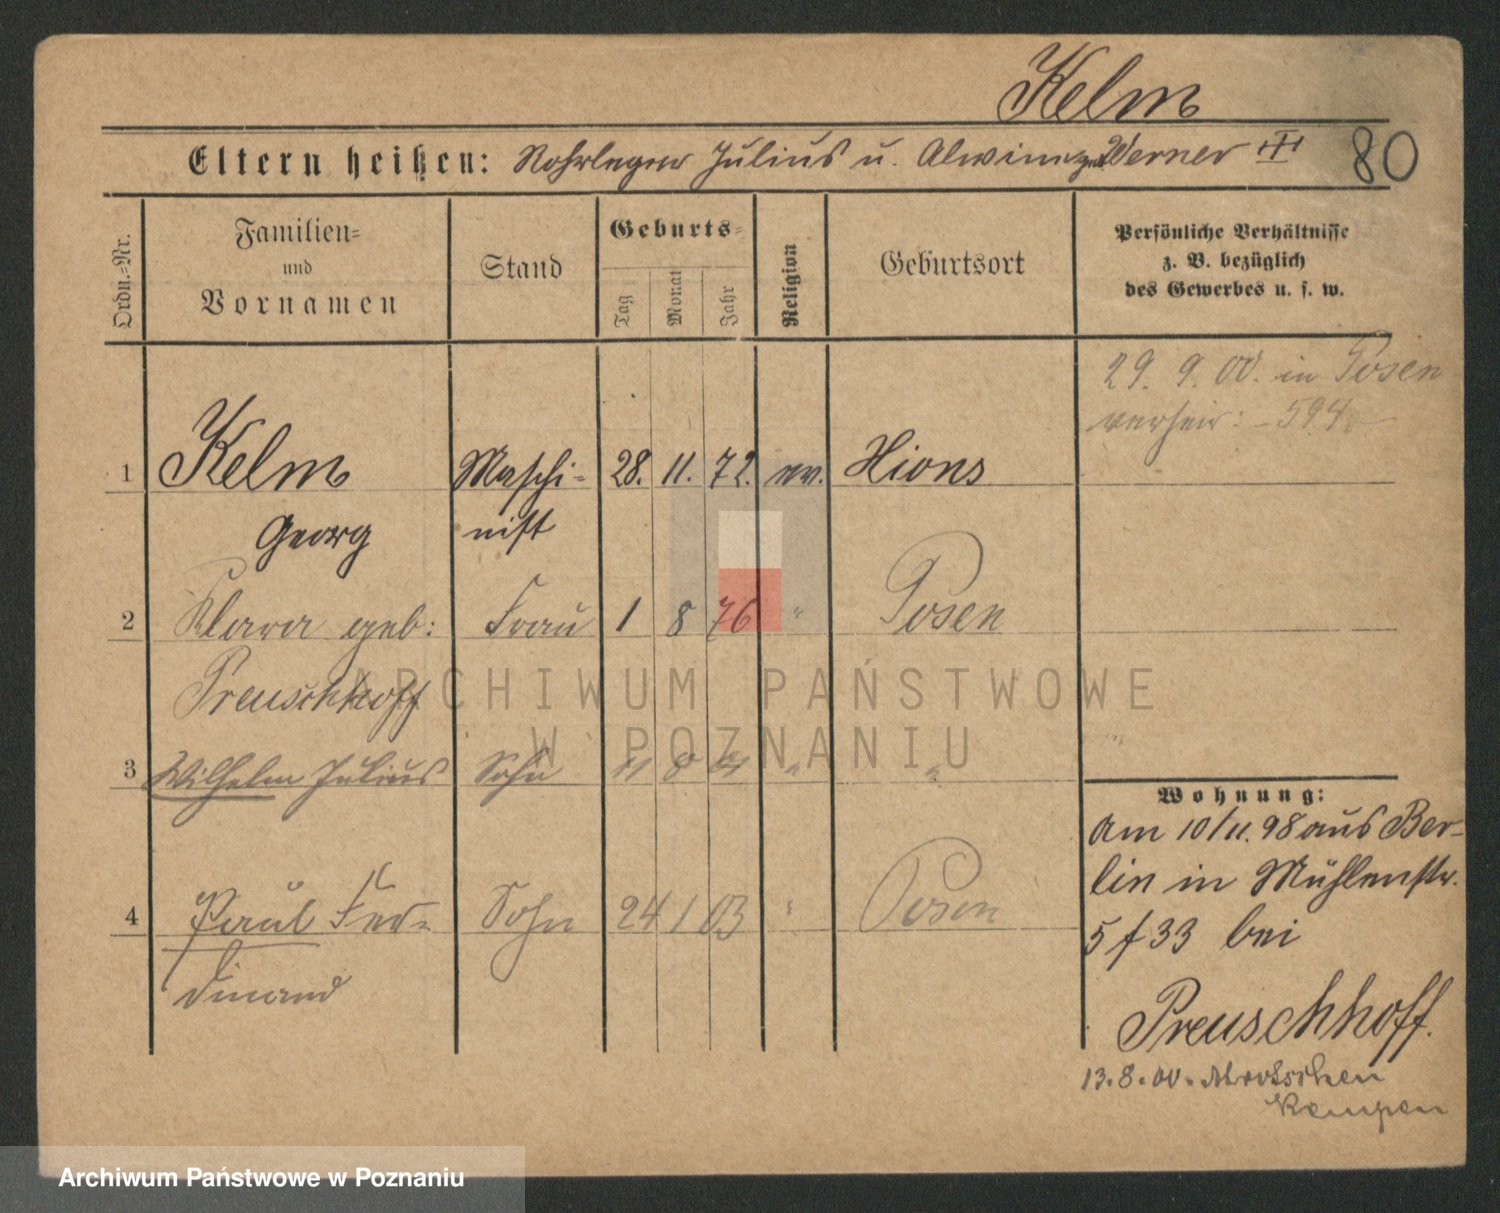 Kelm
Eltern heißen: Rohrleger Julius u. Alwine geb. Werner
80
Ordn.-Nr.
Familien- und Vornamen
Stand
Geburts-
Tag
Monat
Jahr
Religion
Geburtsort
Persönliche Verhältnisse
z. B. bezüglich
des Gewerbes u. s. w.
29. 9. 00. in Posen
verheir: 594
1 Kelm Maschi- 28. 11. 72. ev. Xions
Georg nist
2 Klara geb: Frau 1 8 76 " Posen
Preuschhoff
3 Wilhelm Julius Sohn " "
Wohnung:
Am 10/11.98 aus Ber-
lin in Mühlenstr.
5 f 33 bei
Preuschhoff.
4 Paul Fer- Sohn 24 1 03 " Posen
dinand
13.8.00. Mrotschen
Kempen
ARCHIWUM PAŃSTWOWE
W POZNANIU
Archiwum Państwowe w Poznaniu